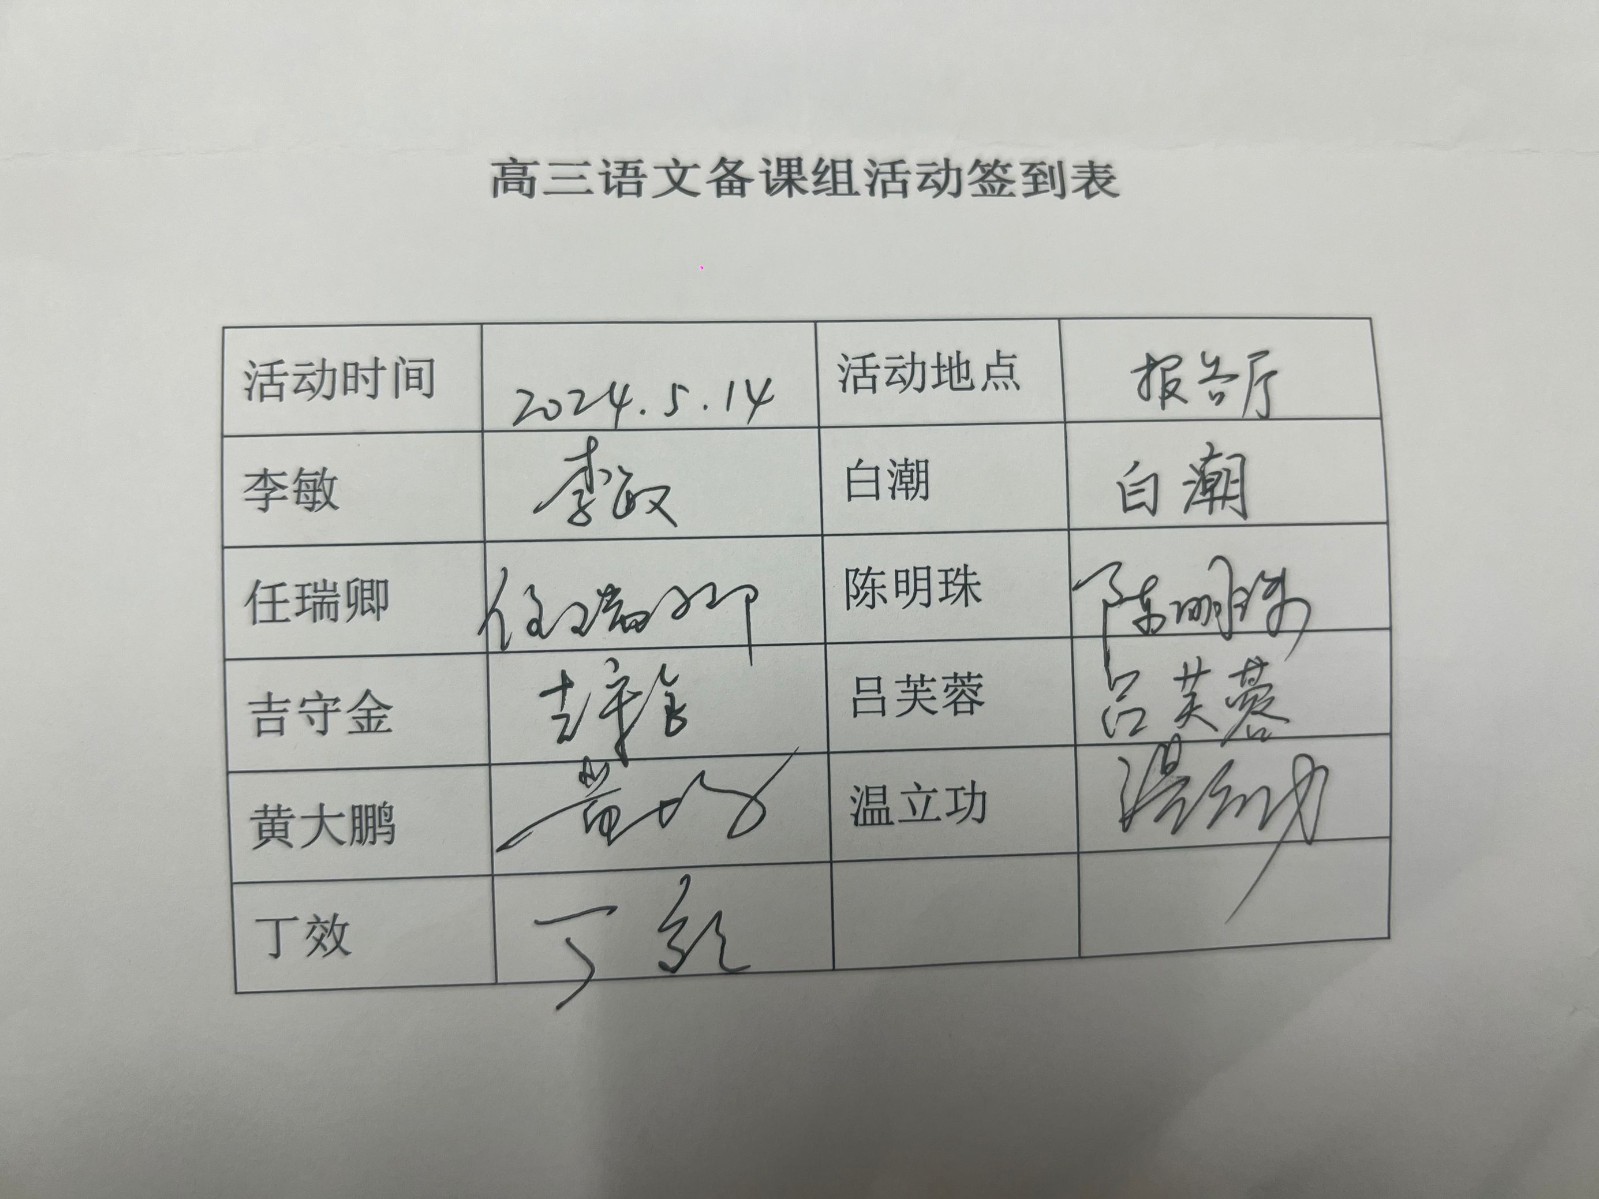 高三语文备课组活动签到表
活动时间 2024.5.14 活动地点 报告厅
李敏 李敏 白潮 白潮
任瑞卿 任瑞卿 陈明珠 陈明珠
吉守金 吉守金 吕芙蓉 吕芙蓉
黄大鹏 黄大鹏 温立功 温立功
丁效 丁效